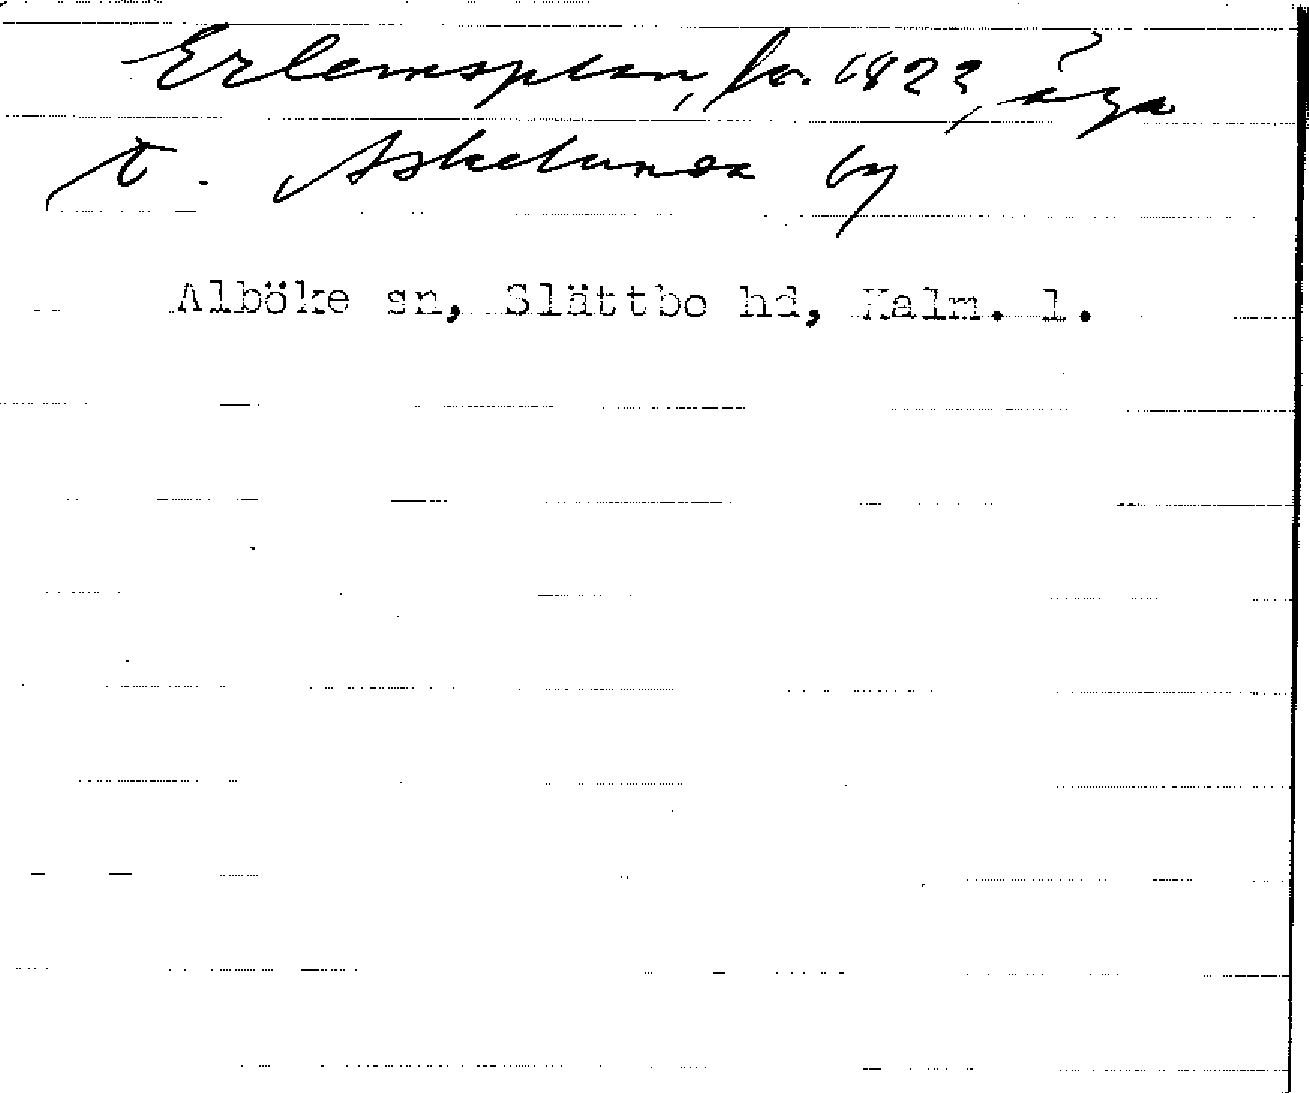 Erlemsplan, fr. 1822, äga
t. Askelunda by
Alböke sn, Slättbo hd, Kalm. l.